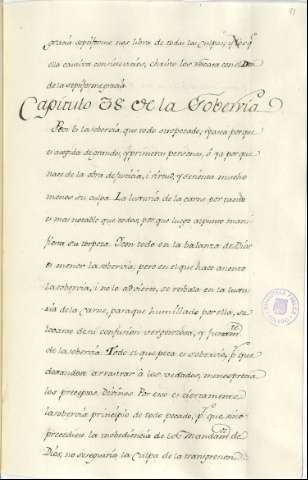 gracia septiforme nos libre de todas las culpas, y
ella cautiva consintieren, chairo los
de la septiforme gracia.
Capitulo 38 de la Sobervia.
Peor es la sobervia, que todo otro pecado, ya sea porque
es acogida de grandes, y primeras personas, ó ya porque
nace de la obra de justicia, i virtud, y se sienta mucho
menos su culpa. La luxuria de la carne por tanto
es mas notable que todos, por que luego al punto mani-
fiesta su torpeza. Con todo en la balanza de Dios
es menor la sobervia; pero en el que hace asiento
la sobervia, i no lo advierte, se rebala en la luxu-
ria de la Carne, para que humillado por ella, se
levante de su confusion vergonzosa, y juntamte
de la sobervia. Todo el que peca es sobervio, pr que
dexandose arrastrar à los vedados, menosprecia
los preceptos Divinos. Por eso es ciertamente
la sobervia principio de todo pecado, pr que si no
precediera la inobediencia de los Mandamtos de
Dios, no se seguiria la Culpa de la transgresion.